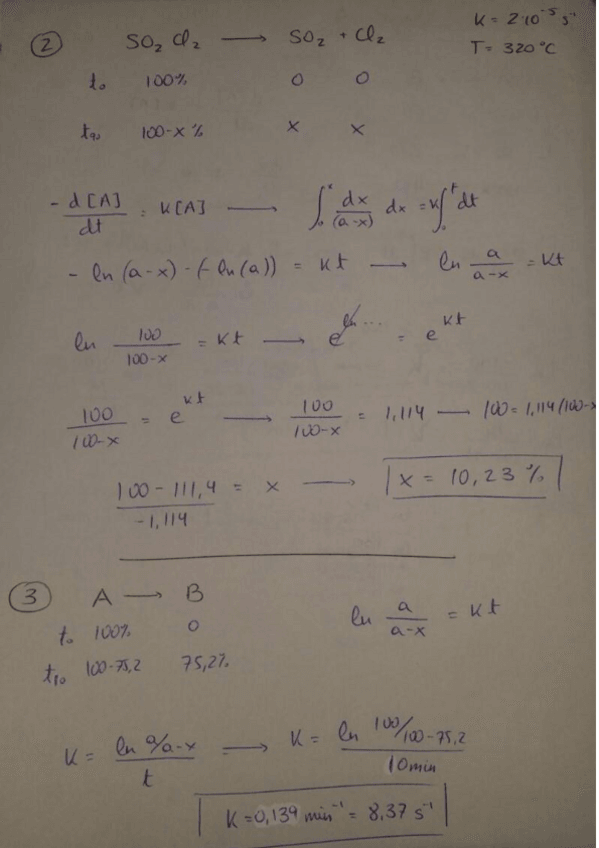 K = 2·10⁻⁵ s⁻¹
② SO₂Cl₂ → SO₂ + Cl₂
T = 320 °C
t₀ 100% 0 0
t₉₀ 100-x % x x
- d[A]/dt = K[A] → ∫₀ˣ dx/(a-x) dx = K∫₀ᵗ dt
- ln (a-x) - (- ln (a)) = Kt → ln a/(a-x) = Kt
ln 100/(100-x) = Kt → e^ln... = e^Kt
100/(100-x) = e^Kt → 100/(100-x) = 1,114 — 100 = 1,114(100-x
(100 - 111,4)/(-1,114) = x → x = 10,23 %
③ A → B
ln a/(a-x) = Kt
t₀ 100% 0
t₁₀ 100-75,2 75,2%
K = (ln a/a-x)/t → K = (ln 100/100-75,2)/10min
K = 0,139 min⁻¹ = 8,37 s⁻¹